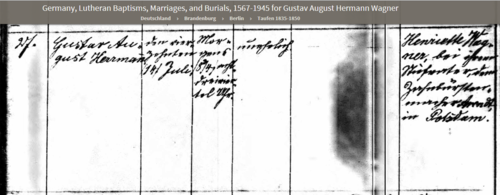 Germany, Lutheran Baptisms, Marriages, and Burials, 1567-1945 for Gustav August Hermann Wagner
Deutschland › Brandenburg › Berlin › Taufen 1835-1850
27.
Gustav Au-
gust Herrmann
den vier
zehnten
14t Juli
Mor-
gens
tel Uhr.
unehelich
Henriette Wag-
ner, bei ihrem
Zahnbürsten-
macher
in Potsdam.